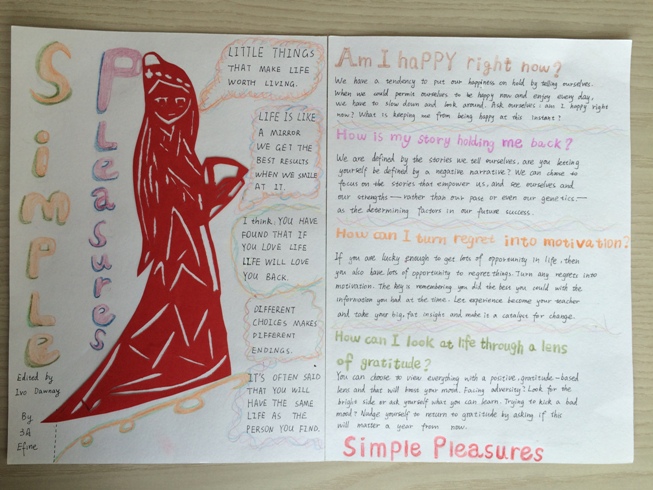 Simple
Pleasures
LITTLE THINGS
THAT MAKE LIFE
WORTH LIVING.
LIFE IS LIKE
A MIRROR
WE GET THE
BEST RESULTS
WHEN WE SMILE
AT IT.
I think, YOU HAVE
FOUND THAT IF
YOU LOVE LIFE
LIFE WILL LOVE
YOU BACK.
DIFFERENT
CHOICES MAKES
DIFFERENT
ENDINGS.
IT'S OFTEN SAID
THAT YOU WILL
HAVE THE SAME
LIFE AS THE
PERSON YOU FIND.
Edited by
Ivo Dawnay
By
3A
Efine
Am I haPPY right now?
We have a tendency to put our happiness on hold by telling ourselves.
When we would permit ourselves to be happy now and enjoy every day,
we have to slow down and look around. Ask ourselves: am I happy right
now? What is keeping me from being happy at this instant?
How is my story holding me back?
We are defined by the stories we tell ourselves. are you letting
yourself be defined by a negative narrative? We can choose to
focus on the stories that empower us, and see ourselves and
our strengths — rather than our past or even our genetics —
as the determining factors in our future success.
How can I turn regret into motivation?
If you are lucky enough to get lots of opportunity in life, then
you also have lots of opportunity to regret things. Turn any regrets into
motivation. The key is remembering you did the best you could with the
information you had at the time. Let experience become your teacher
and take your big, fat insight and make is a catalyst for change.
How can I look at life through a lens
of gratitude?
You can choose to view everything with a positive, gratitude-based
lens and that will boost your mood. Facing adversity? Look for the
bright side or ask yourself what you can learn. Trying to kick a bad
mood? Nudge yourself to return to gratitude by asking if this
will matter a year from now.
Simple Pleasures